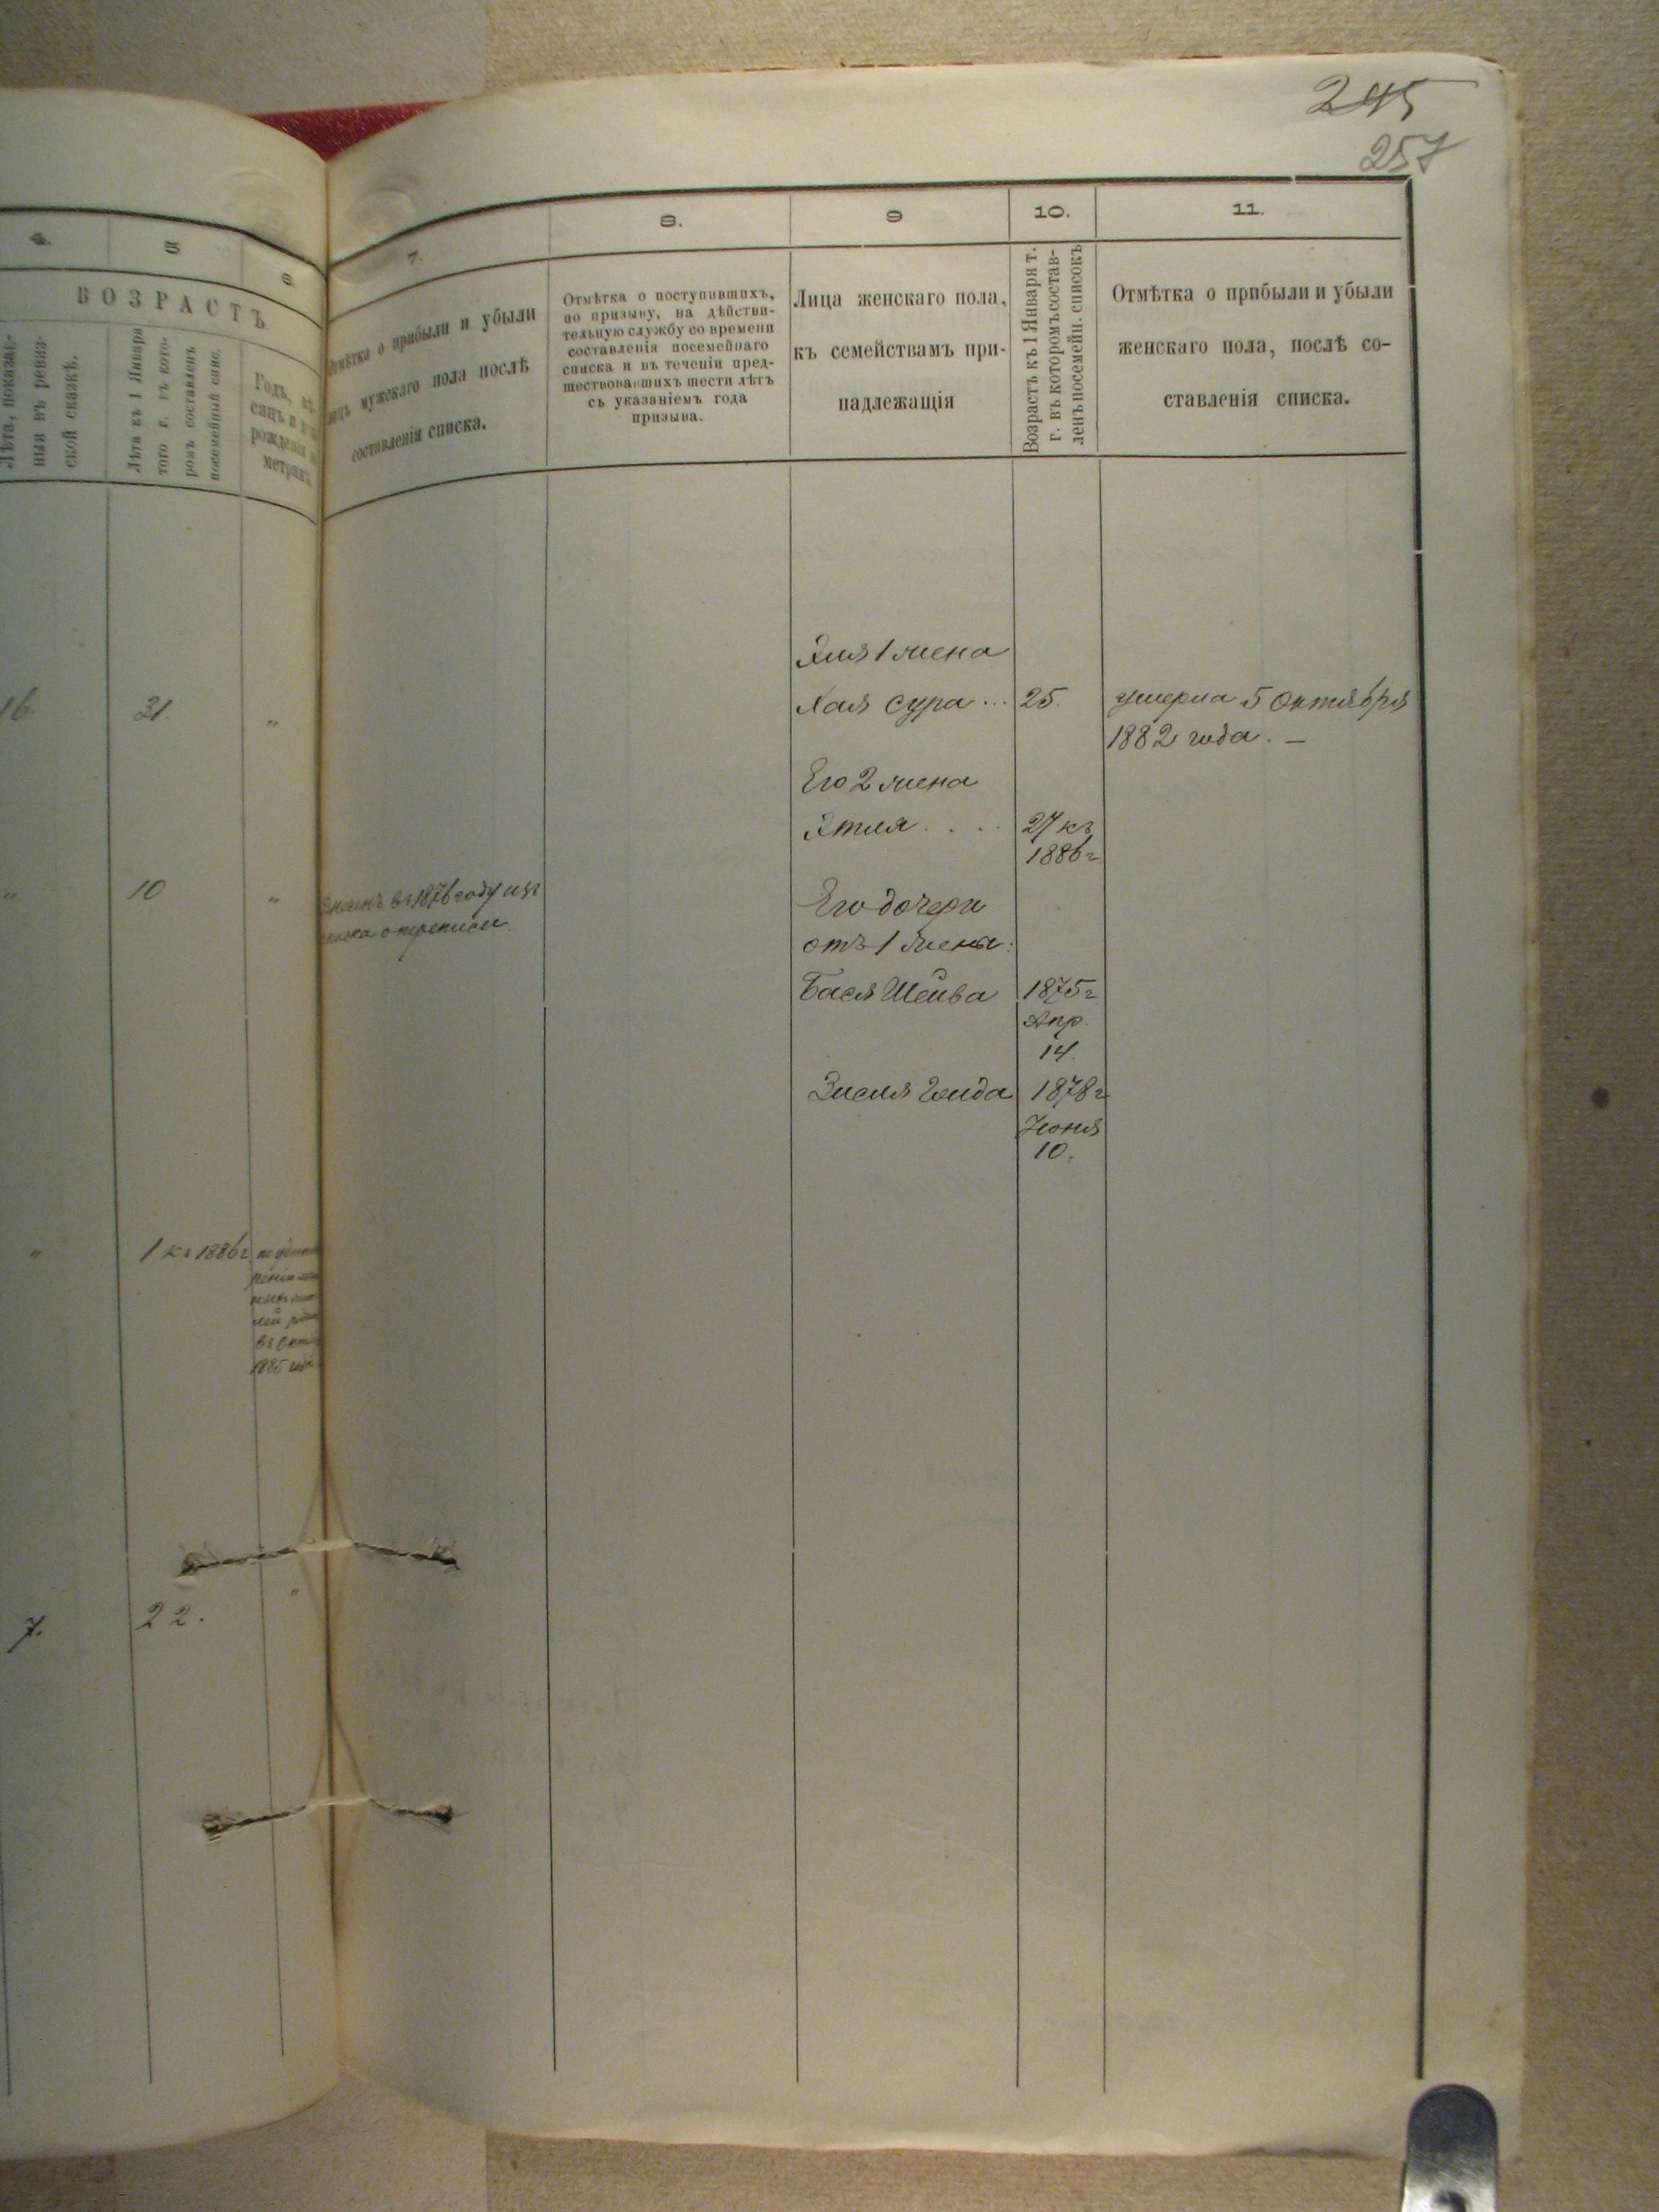 245
257
4.
5
6.
ВОЗРАСТЪ
Лѣта, показан-
ныя въ ревиз-
ской сказкѣ.
Лѣта къ 1 Января
того г. въ кото-
ромъ составленъ
посемейный спис.
Годъ, мѣ-
сяцъ и
рожденія
метрик
16.
31.
"
"
10
"
"
1 къ 1886 г.
1885
7.
22.
"
7.
8.
9
10.
11.
Отмѣтка о прибыли и убыли
лицъ мужскаго пола послѣ
составленія списка.
Отмѣтка о поступившихъ,
по призыву, на дѣйстви-
тельную службу со времени
составленія посемейнаго
списка и въ теченіи пред-
шествовавшихъ шести лѣтъ
съ указаніемъ года
призыва.
Лица женскаго пола,
къ семействамъ при-
надлежащія
Возрастъ къ 1 Января т.
г. въ которомъ состав-
ленъ посемейн. списокъ
Отмѣтка о прибыли и убыли
женскаго пола, послѣ со-
ставленія списка.
въ 1876 году изъ
1 жена
Хая Сура ... 25. умерла 5 Октября
1882 года. —
Его 2 жена
Этля . . . . 27 къ
1886 г.
Его дочери
отъ 1 жены:
Бася Шейва 1875 г.
Апр.
14.
Зисля Гинда 1878 г
Іюня
10.